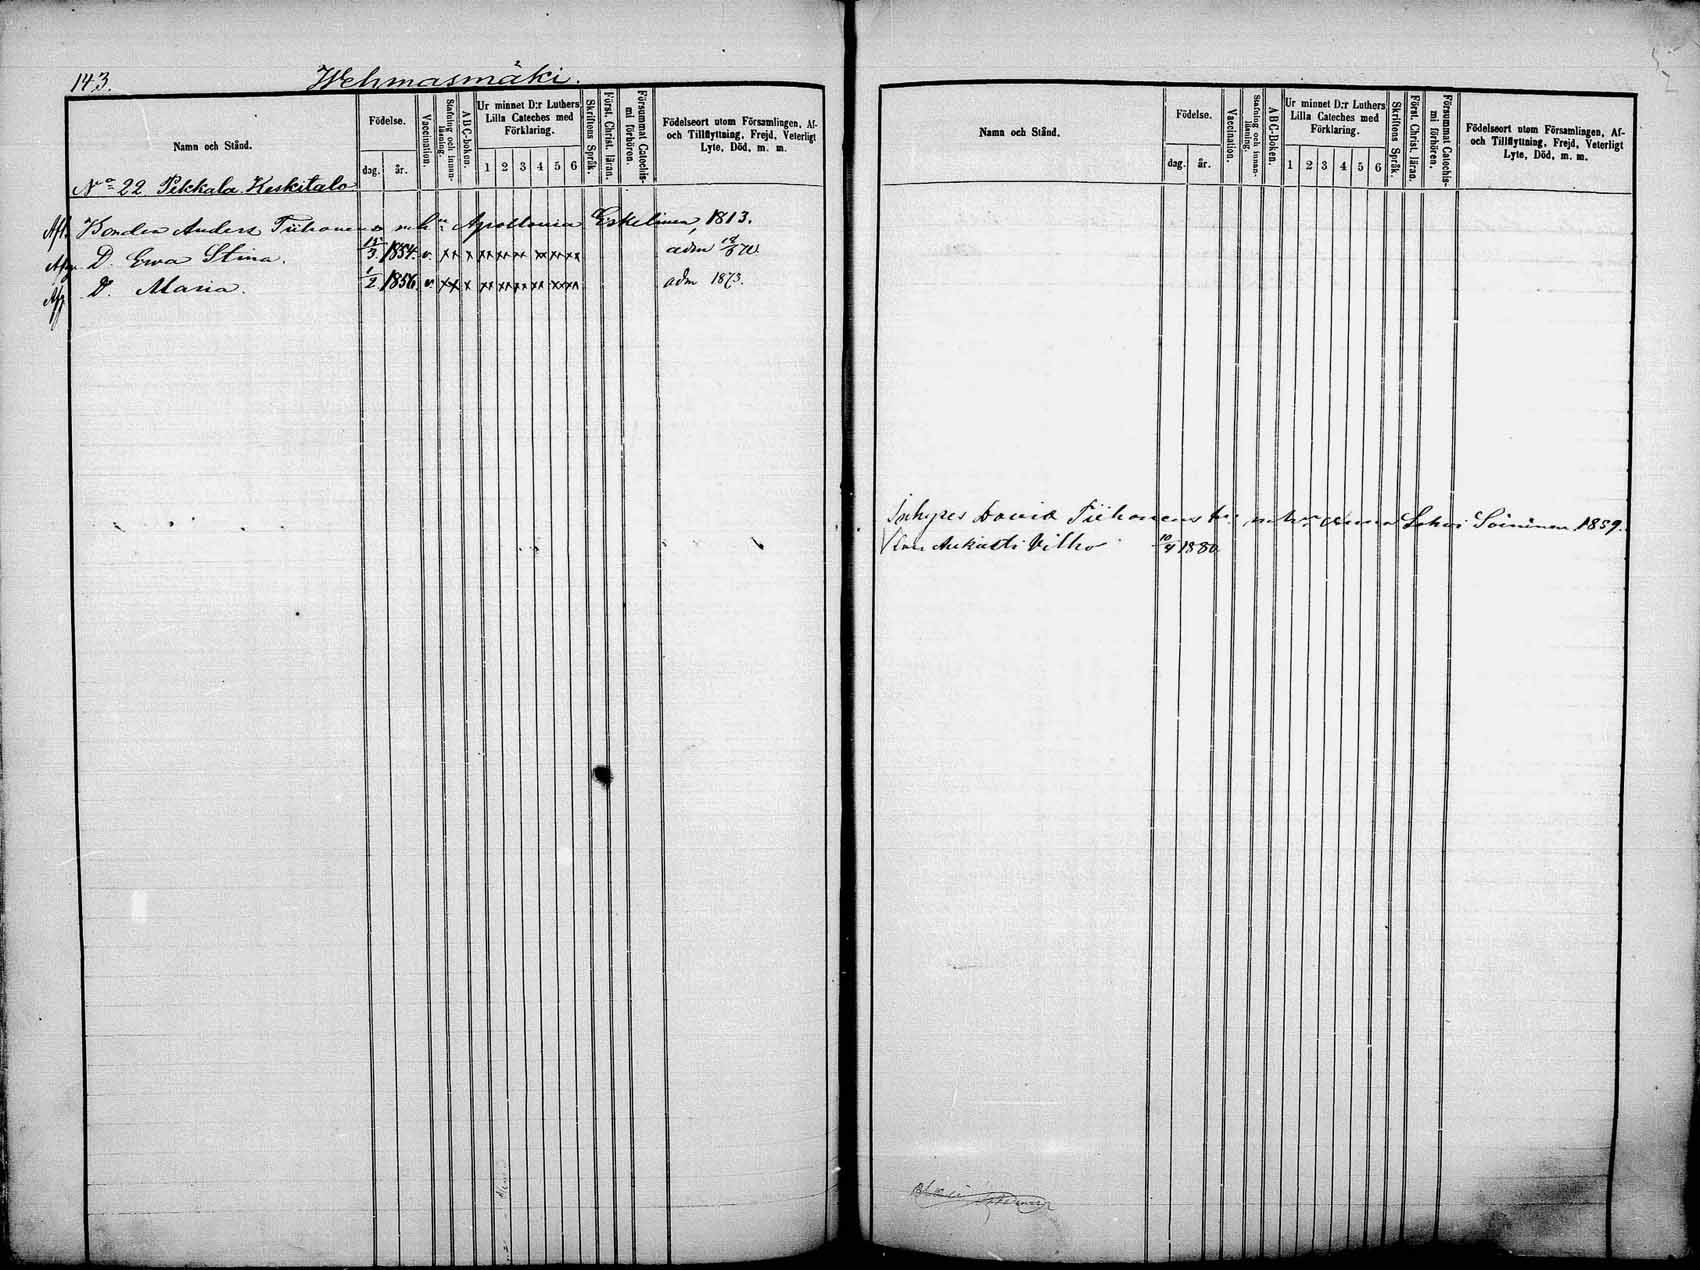 143.
Wehmasmäki.
Namn och Stånd.
Födelse.
dag.
år.
Vaccination.
Stafning och innan-läsning.
A B C-boken.
Ur minnet D:r Luthers
Lilla Cateches med
Förklaring.
1 2 3 4 5 6
Skriftens Språk.
Först. Christ. läran.
Försummat Catechis-
mi förhören.
Födelseort utom Församlingen, Af-
och Tillflyttning, Frejd, Veterligt
Lyte, Död, m. m.
No 22 Pekkala Keskitalo
Bonden Anders Tiihonens m. hu Apollonia Eskelinen, 1813.
D. Ewa Stina. 3 1854. v. xx x xx xx xx xx xx xx adm
D. Maria. 1/2 1856. v. xx x xx xx xx xx xx xx adm 1873.
Namn och Stånd.
Födelse.
dag.
år.
Vaccination.
Stafning och innan-
läsning.
A B C-Boken.
Ur minnet D:r Luthers
Lilla Cateches med
Förklaring.
1 2 3 4 5 6
Skriftens Språk.
Först. Christ. läran.
Försummat Catechis-
mi förhören.
Födelseort utom Församlingen, Af-
och Tillflyttning, Frejd, Veterligt
Lyte, Död, m. m.
Inhyses David Tiihonens Anna Soininen 1859.
Son Aukusti Vilho 10/4 1880